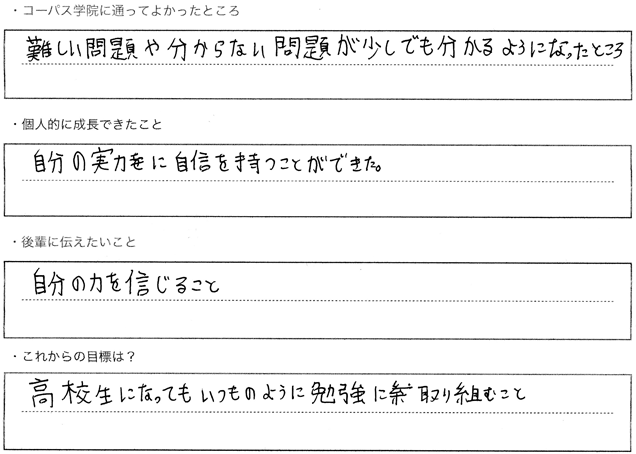 ・コーパス学院に通ってよかったところ
難しい問題や分からない問題が少しでも分かるようになったところ
・個人的に成長できたこと
自分の実力に自信を持つことができた。
・後輩に伝えたいこと
自分の力を信じること
・これからの目標は？
高校生になってもいつものように勉強に取り組むこと